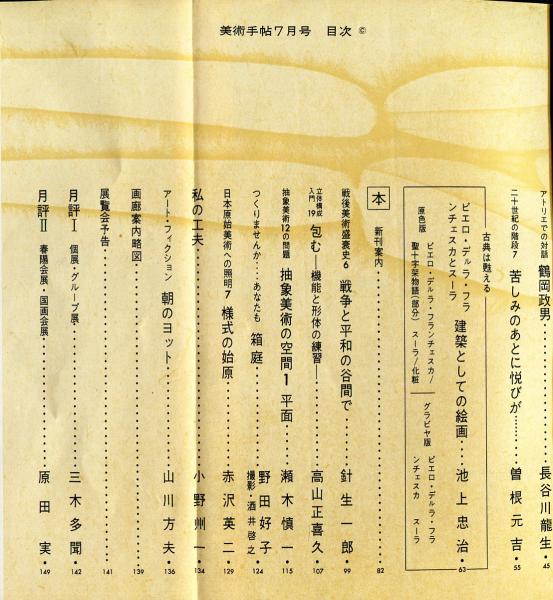 美術手帖7月号　目次 ©
アトリエでの対話 鶴岡政男‥‥‥‥長谷川龍生・45
二十世紀の階段7 苦しみのあとに悦びが‥‥‥‥曽根元吉・55
古典は甦える
ピエロ・デルラ・フランチェスカとスーラ 建築としての絵画‥‥池上忠治・63
原色版 ピエロ・デルラ・フランチェスカ/聖十字架物語(部分) スーラ/化粧
グラビヤ版 ピエロ・デルラ・フランチェスカ スーラ
本 新刊案内‥‥‥‥82
戦後美術盛衰史6 戦争と平和の谷間で‥‥‥‥針生一郎・99
立体構成入門19 包む―機能と形体の練習―‥‥‥‥高山正喜久・107
抽象美術12の問題 抽象美術の空間1 平面‥‥‥‥瀬木慎一・115
つくりませんか‥‥あなたも 箱庭‥‥‥‥野田好子 撮影・酒井啓之・124
日本原始美術への照明7 様式の始原‥‥‥‥赤沢英二・129
私の工夫‥‥‥‥小野州一・134
アート・フィクション 朝のヨット‥‥‥‥山川方夫・136
画廊案内略図‥‥‥‥139
展覧会予告‥‥‥‥141
月評Ⅰ 個展・グループ展‥‥‥‥三木多聞・142
月評Ⅱ 春陽会展・国画会展‥‥‥‥原田実・149